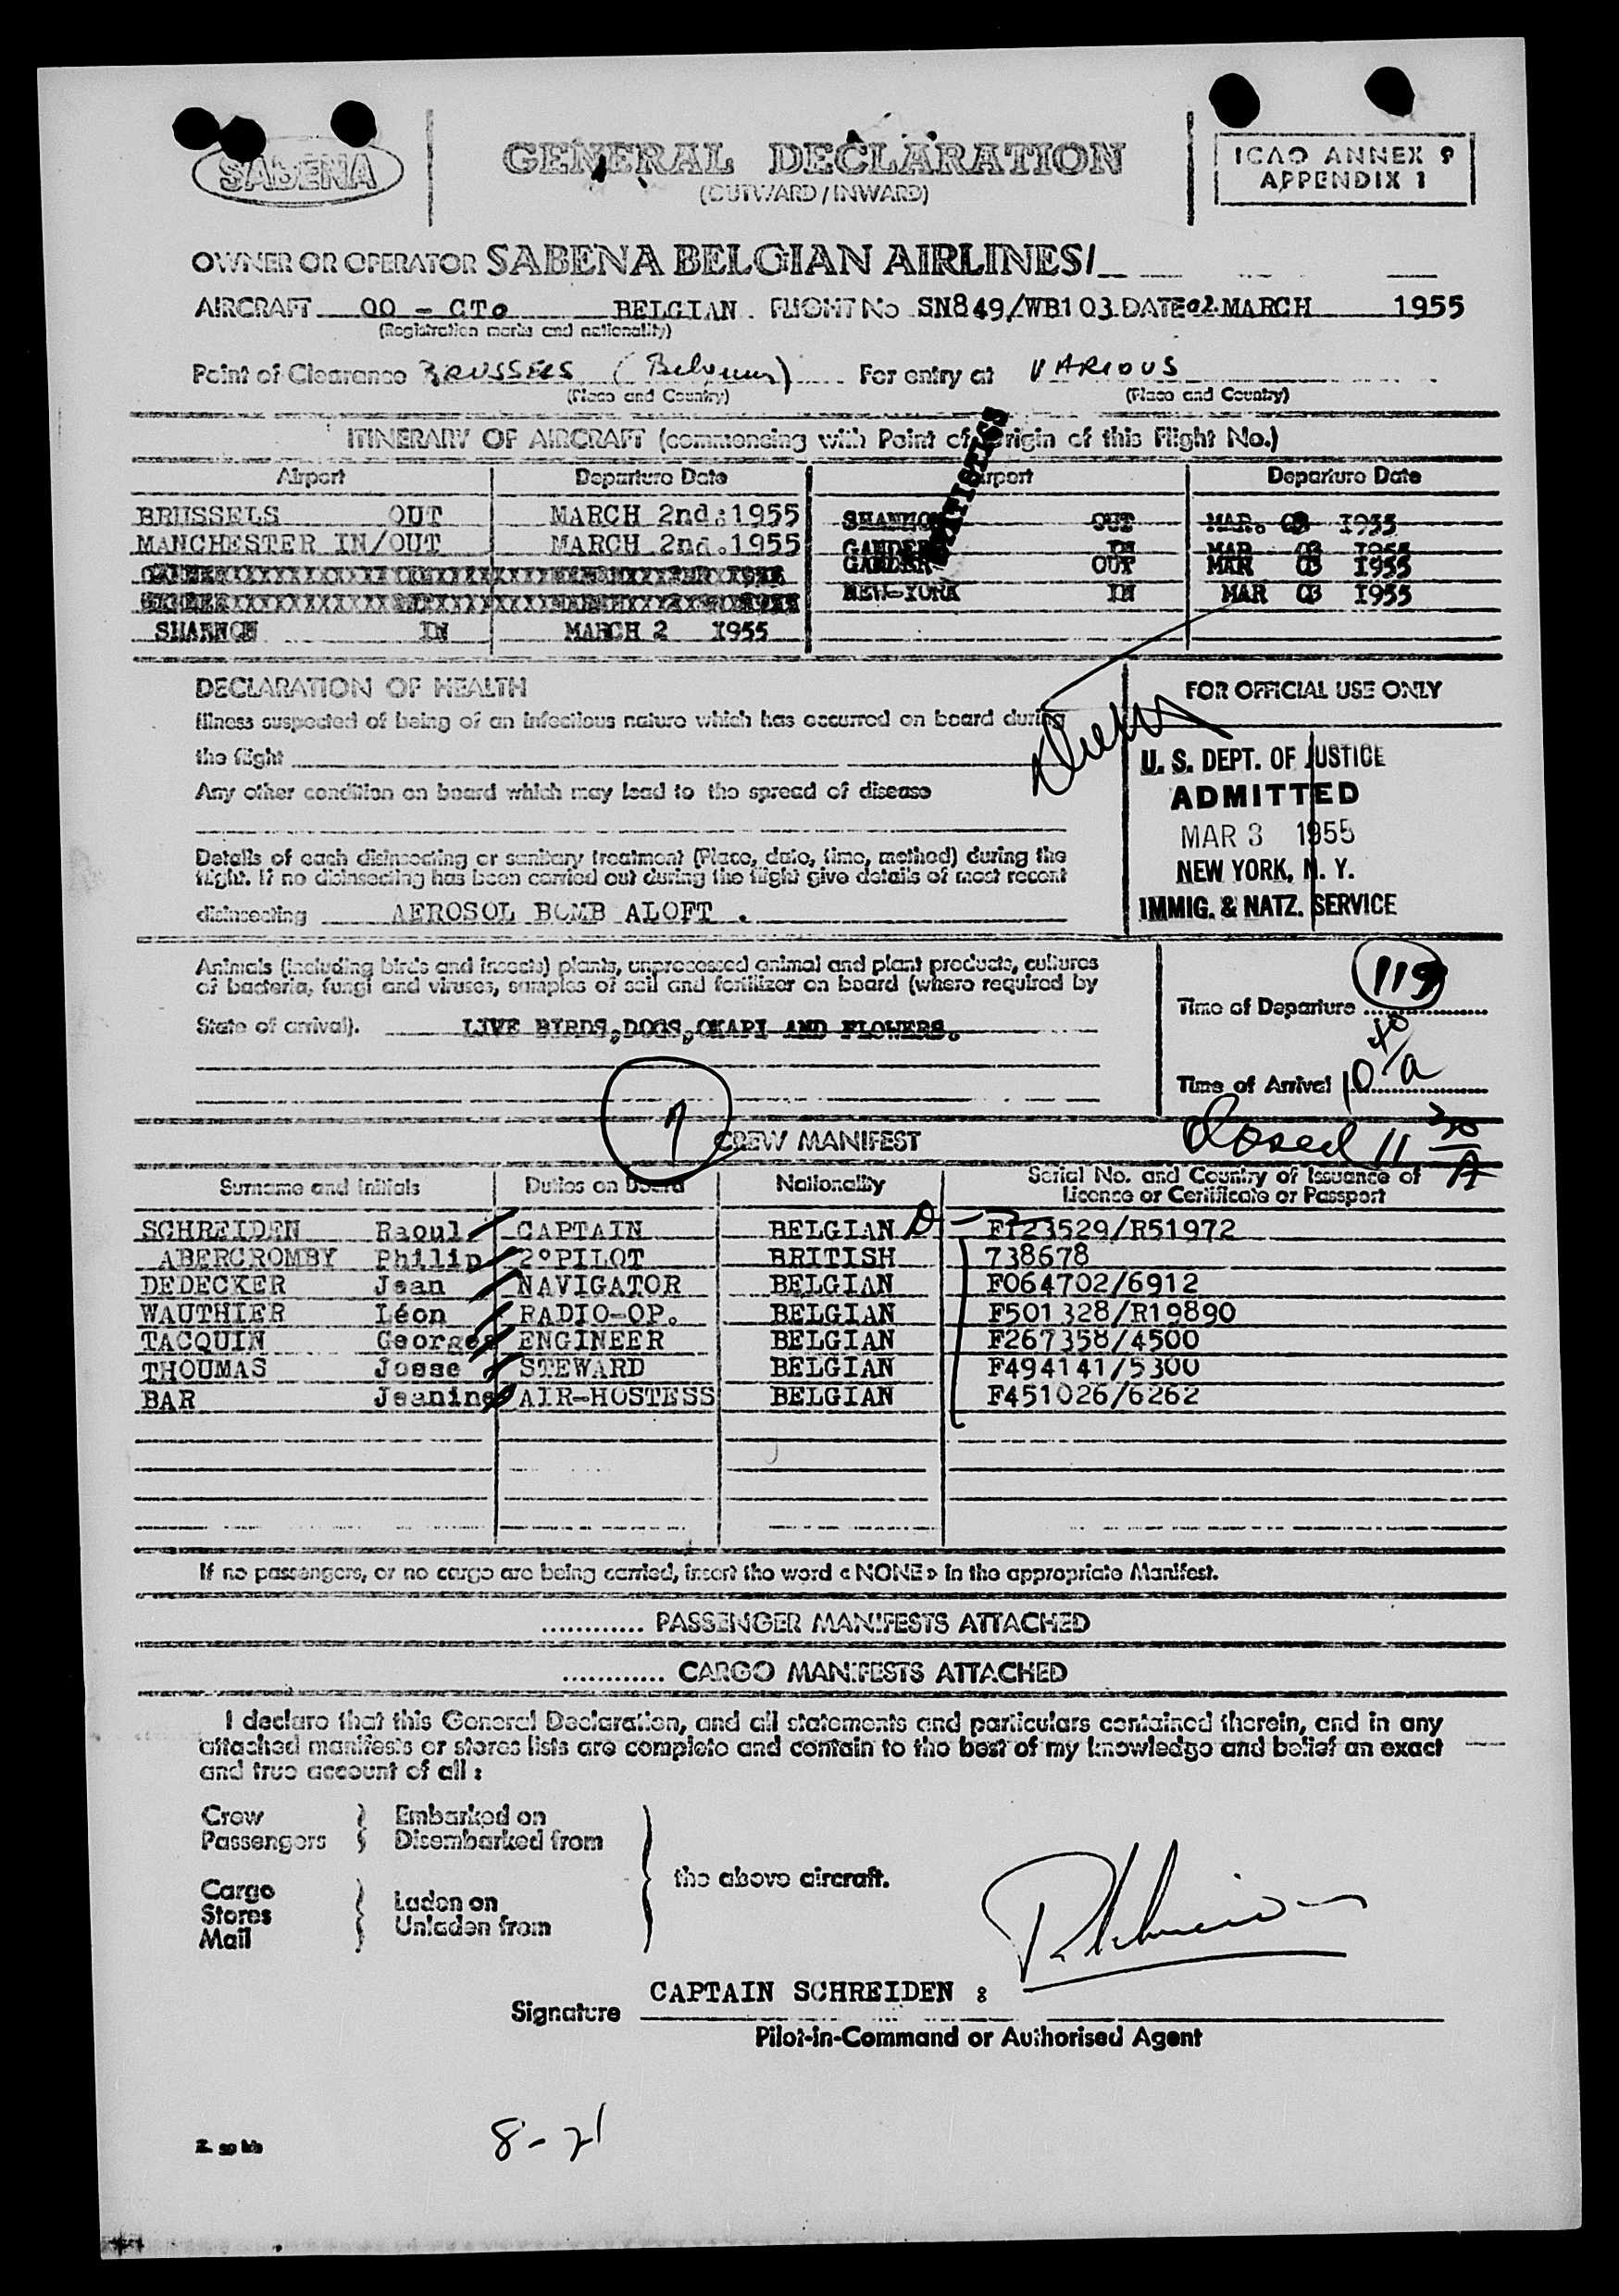 SABENA
GENERAL DECLARATION
(OUTWARD / INWARD)
ICAO ANNEX 9
APPENDIX 1
OWNER OR OPERATOR SABENA BELGIAN AIRLINES/
AIRCRAFT OO - CTO BELGIAN. FLIGHT No SN849/WB103 DATE 02 MARCH 1955
(Registration marks and nationality)
Point of Clearance BRUSSELS (Belgium) For entry at VARIOUS
(Place and Country) (Place and Country)
ITINERARY OF AIRCRAFT (commencing with Point of Origin of this Flight No.)
Airport Departure Date Airport Departure Date
BRUSSELS OUT MARCH 2nd.1955 SHANNON OUT MAR. 03 1955
MANCHESTER IN/OUT MARCH 2nd.1955 GANDER IN MAR 03 1955
GANDER OUT MAR 03 1955
NEW-YORK IN MAR 03 1955
SHANNON IN MARCH 2 1955
STATISTICS
DECLARATION OF HEALTH
Illness suspected of being of an infectious nature which has occurred on board during
the flight
Any other condition on board which may lead to the spread of disease
Details of each disinsecting or sanitary treatment (Place, date, time, method) during the
flight. If no disinsecting has been carried out during the flight give details of most recent
disinsecting AEROSOL BOMB ALOFT .
FOR OFFICIAL USE ONLY
U. S. DEPT. OF JUSTICE
ADMITTED
MAR 3 1955
NEW YORK, N. Y.
IMMIG. & NATZ. SERVICE
Animals (including birds and insects) plants, unprocessed animal and plant products, cultures
of bacteria, fungi and viruses, samples of soil and fertilizer on board (where required by
State of arrival). LIVE BIRDS,DOGS,OKAPI AND FLOWERS.
119
Time of Departure
Time of Arrival 10 40/a
Closed 11 30/A
7
CREW MANIFEST
Surname and Initials Duties on board Nationality Serial No. and Country of Issuance of
License or Certificate or Passport
SCHREIDEN Raoul CAPTAIN BELGIAN D F123529/R51972
ABERCROMBY Philip 2°PILOT BRITISH 738678
DEDECKER Jean NAVIGATOR BELGIAN F064702/6912
WAUTHIER Léon RADIO-OP. BELGIAN F501328/R19890
TACQUIN Georges ENGINEER BELGIAN F267358/4500
THOUMAS Josse STEWARD BELGIAN F494141/5300
BAR Jeanine AIR-HOSTESS BELGIAN F451026/6262
If no passengers, or no cargo are being carried, insert the word « NONE » in the appropriate Manifest.
............ PASSENGER MANIFESTS ATTACHED
............ CARGO MANIFESTS ATTACHED
I declare that this General Declaration, and all statements and particulars contained therein, and in any
attached manifests or stores lists are complete and contain to the best of my knowledge and belief an exact
and true account of all :
Crew Embarked on
Passengers Disembarked from
the above aircraft.
Cargo Laden on
Stores Unladen from
Mail
CAPTAIN SCHREIDEN :
Signature
Pilot-in-Command or Authorised Agent
8-21